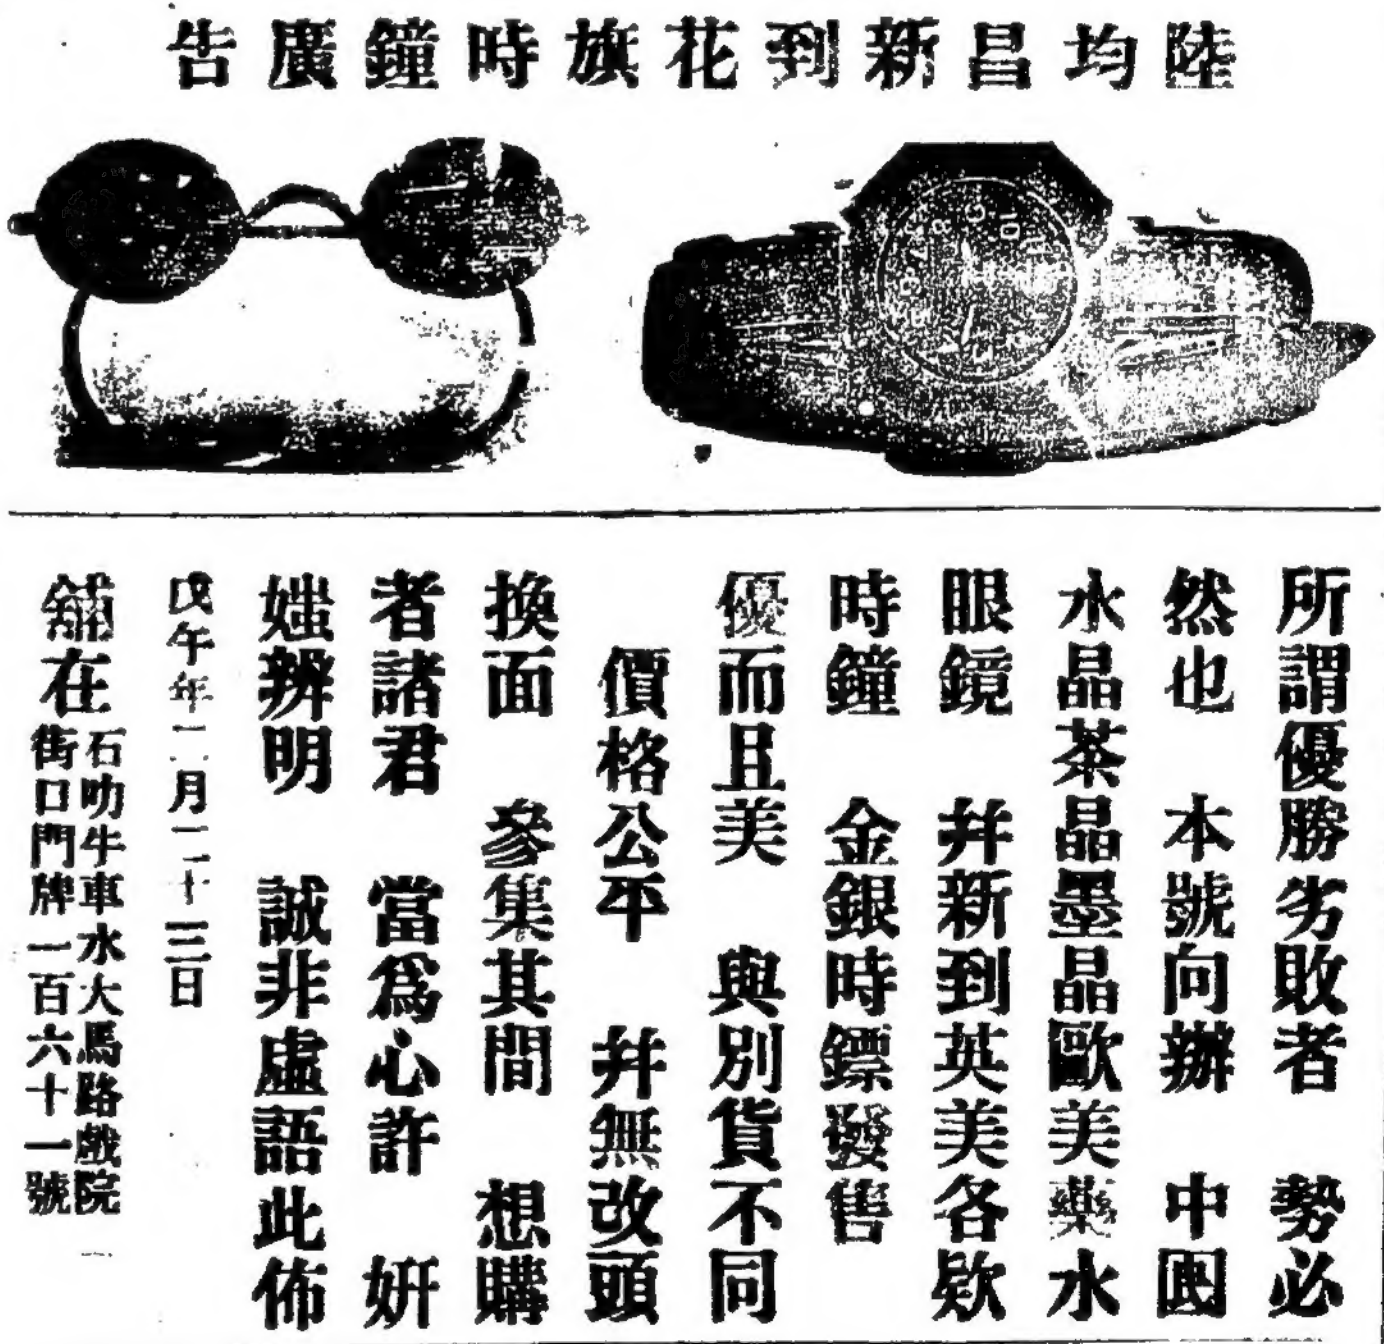 陸均昌新到花旗時鐘廣告
所謂優勝劣敗者　勢必
然也　本號向辦　中國
水晶茶晶墨晶歐美藥水
眼鏡　幷新到英美各欵
時鐘　金銀時鏢發售
優而且美　與別貨不同
價格公平　幷無改頭
換面　參集其間　想購
者諸君　當爲心許　妍
媸辨明　誠非虛語此佈
戊午年二月二十三日
舖在
石叻牛車水大馬路戲院
街口門牌一百六十一號